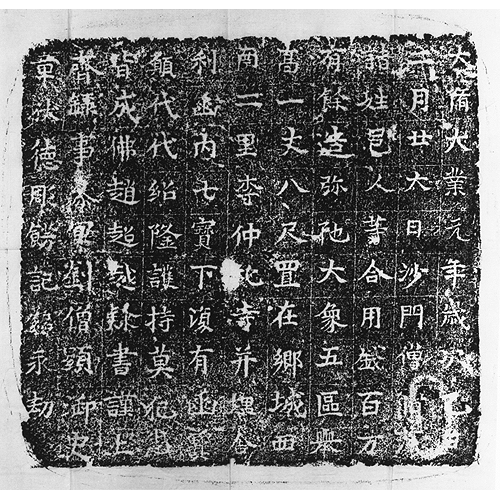 大隋大業元年歲次乙丑
二月廿六日沙門僧
諸姓邑人等合用錢百万
有餘造弥陁大象五區舉
高一丈八尺置在鄉城西
南二里李仲寺并埋舍
利函内七寶下復有函
願代代紹隆護持莫犯
皆成佛趙超越隸書謹上
齊鎮事劉僧頭御史
東德彫飾記銘永劫